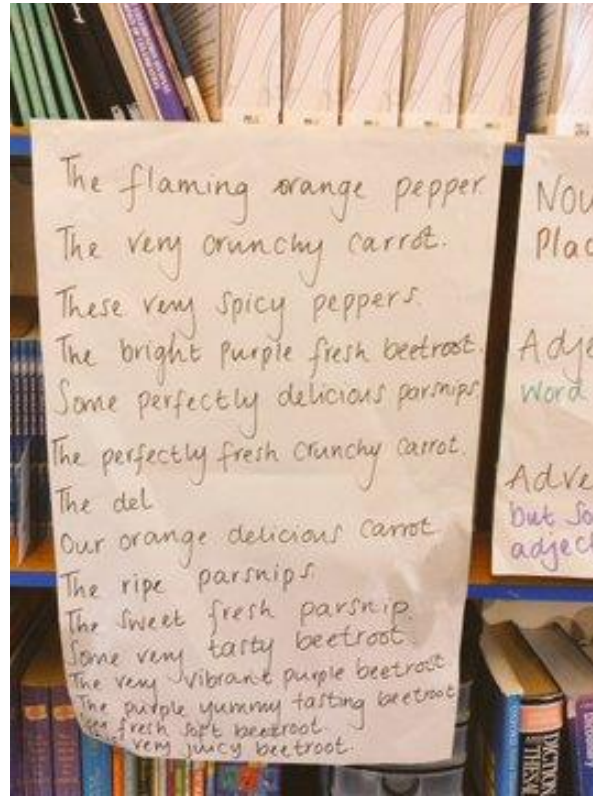 The flaming orange pepper
The very crunchy carrot.
These very spicy peppers.
The bright purple fresh beetroot.
Some perfectly delicious parsnips.
The perfectly fresh crunchy carrot.
The del
Our orange delicious carrot
The ripe parsnips.
The sweet fresh parsnip.
Some very tasty beetroot.
The very vibrant purple beetroot.
The purple yummy tasting beetroot
fresh soft beetroot.
very juicy beetroot.
Nou
Plac
Adje
word
Adve
but so
adject
DICTION
THESA